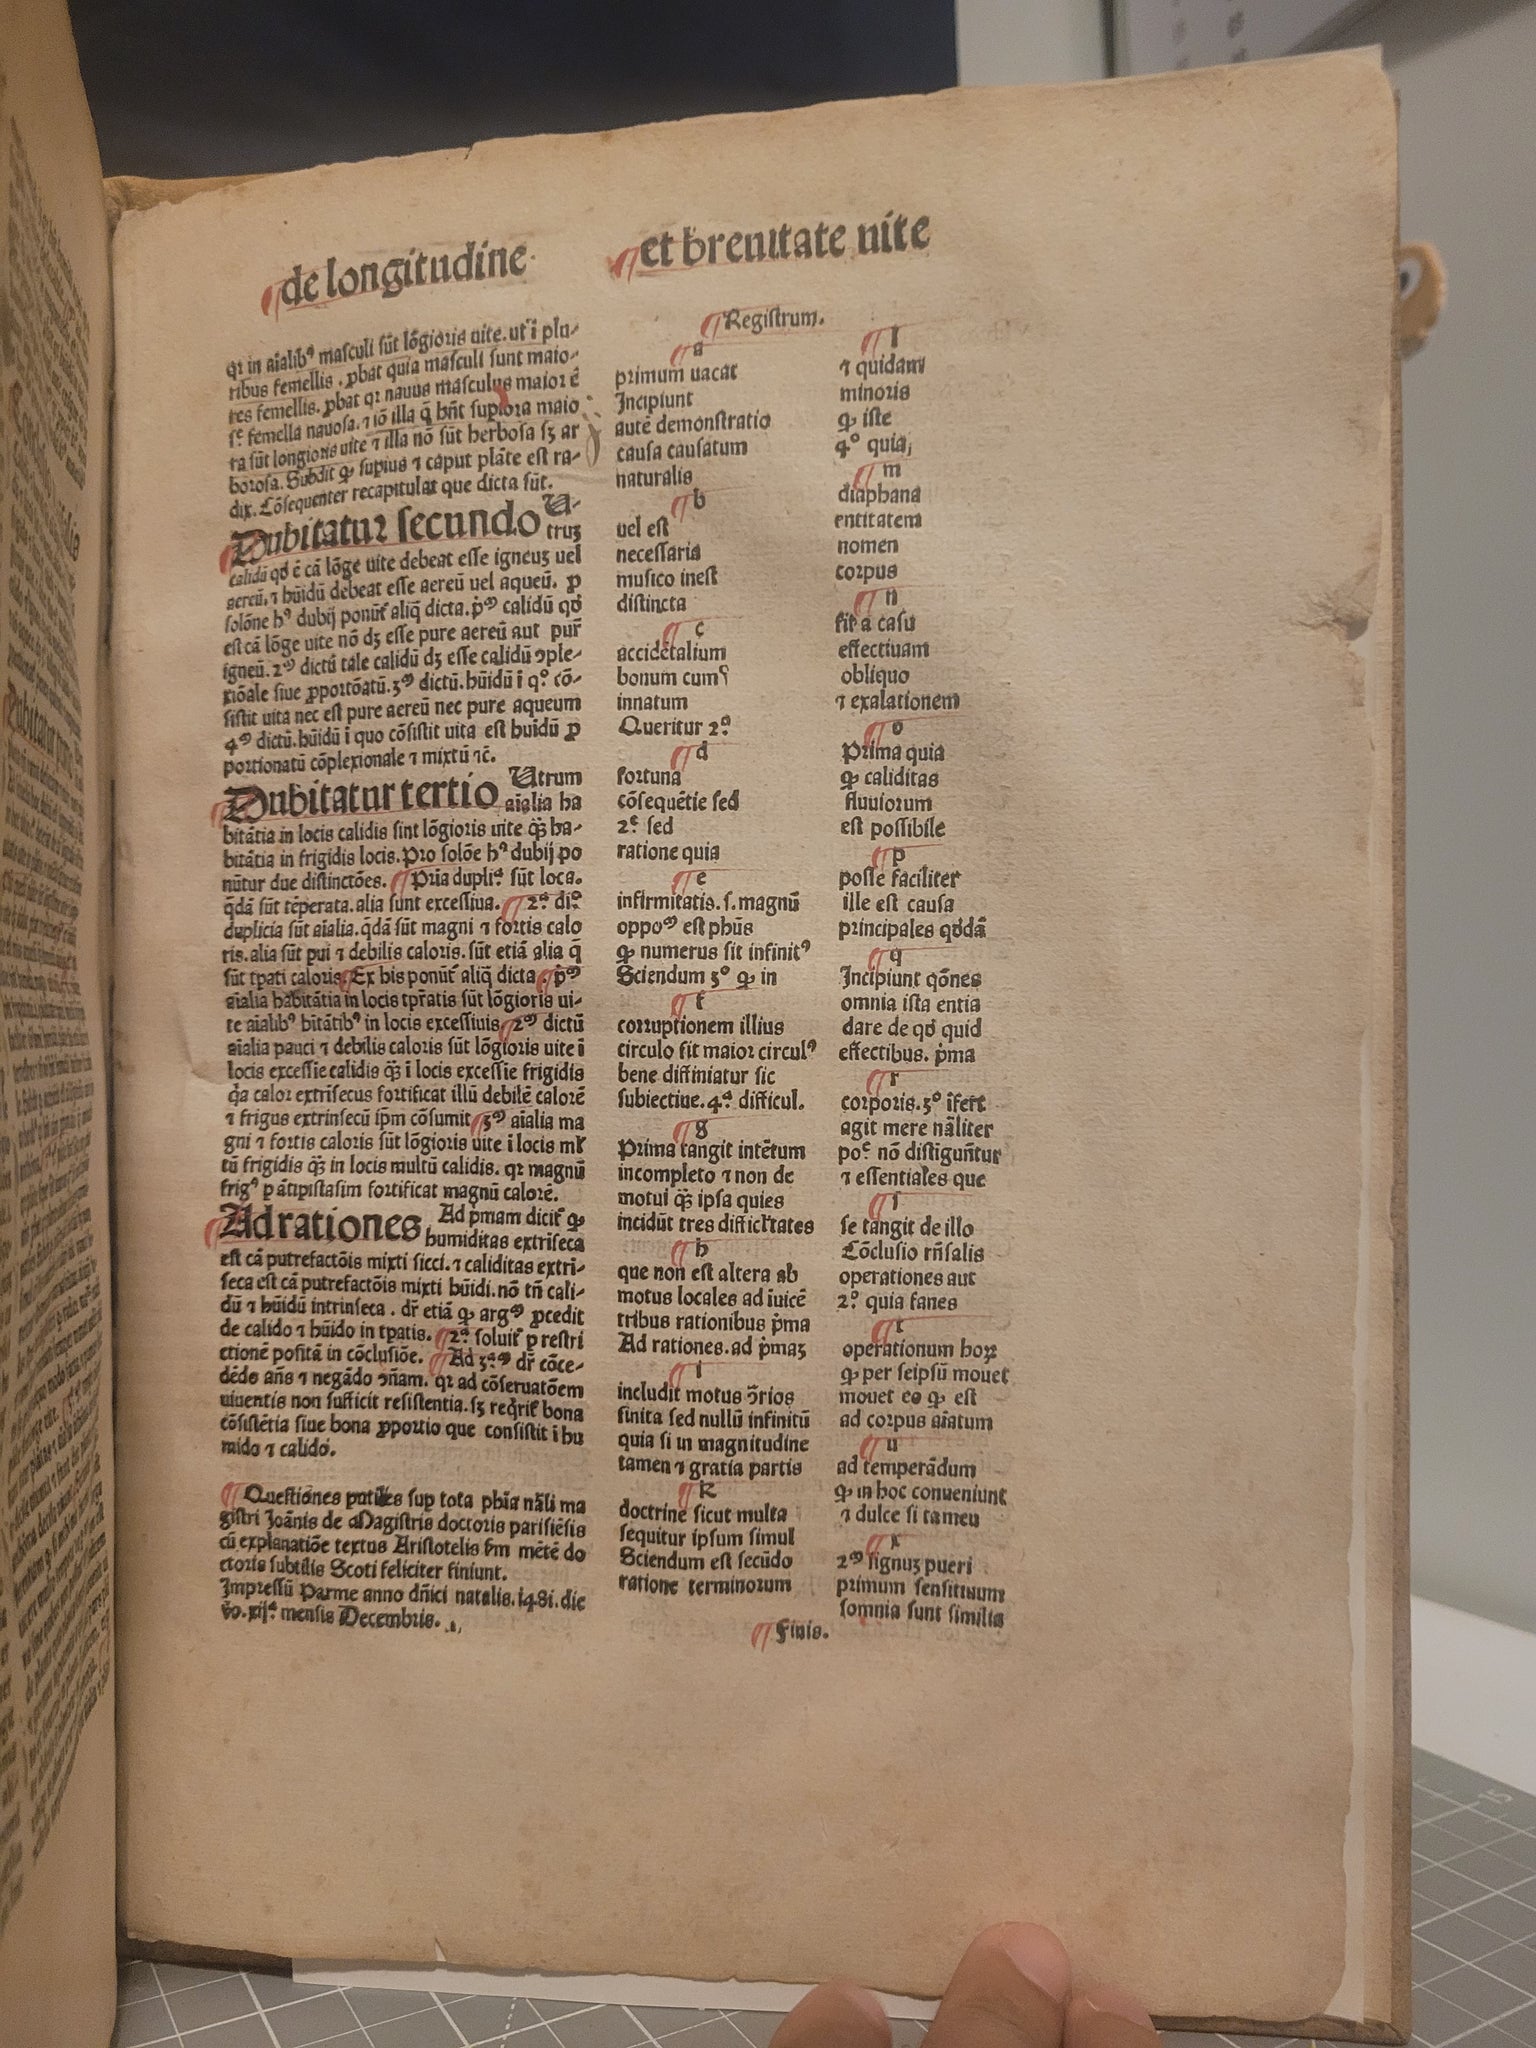 de longitudine
et breuitate uite
qr in aīalibꝰ masculi sūt lōgioris uite. ut ī plu-
ribus femellis. ꝓbat quia masculi sunt maio-
res femellis. ꝓbat qr nauus masculus maior ē
sꝫ femella nauosa. ⁊ iō illa q̄ hn̄t supiora maio
ra sūt longioris uite ⁊ illa nō sūt herbosa sꝫ ar
borosa. Subdit ꝙ supius ⁊ caput plāte est ra-
dix. Cōsequenter recapitulat que dicta sūt.
Dubitatur secundo U-
truꝫ
calidū qd̄ ē cā lōge uite debeat esse igneuꝫ uel
aereū. ⁊ hūidū debeat esse aereū uel aqueū. ꝓ
solōne hꝰ dubij ponūt̄ aliq̄ dicta. p̊ꝫ calidū qd̄
est cā lōge uite nō dꝫ esse pure aereū aut pur̄
igneū. 2ꝫ dictū tale calidū dꝫ esse calidū ꝯple-
xiōale siue ꝓportōatū. 3ꝫ dictū. hūidū ī qº cō-
sistit uita nec est pure aereū nec pure aqueum
4ꝫ dictū. hūidū ī quo cōsistit uita est hūidū ꝓ
portionatū cōplexionale ⁊ mixtū ⁊c̄.
Dubitatur tertio Utrum
aīalia ha
bitātia in locis calidis sint lōgioris uite q̄ꝫ ha-
bitātia in frigidis locis. Pro solōe hꝰ dubij po
nūtur due distinctōes. ¶ Pria dupliª sūt loca.
q̄dā sūt tēperata. alia sunt excessiua. ¶ 2ª diº
duplicia sūt aīalia. q̄dā sūt magni ⁊ fortis calo
ris. alia sūt pui ⁊ debilis caloris. sūt etiā alia q̄
sūt tpati caloris ¶ Ex his ponūt̄ aliq̄ dicta ¶ p̊ꝫ
aīalia habitātia in locis tpr̄atis sūt lōgioris ui-
te aīalibꝰ bitātibꝰ in locis excessiuis. ¶ 2ꝫ dictū
aīalia pauci ⁊ debilis caloris sūt lōgioris uite ī
locis excessie calidis q̄ꝫ ī locis excessie frigidis
q̊a calor extrīsecus fortificat illū debilē calorē
⁊ frigus extrinsecū ip̄m cōsumit ¶ 3ꝫ aīalia ma
gni ⁊ fortis caloris sūt lōgioris uite ī locis ml̄
tū frigidis q̄ꝫ in locis multū calidis. qr magnū
frigꝰ p ātipistasim fortificat magnū calorē.
Ad rationes Ad p̊mam dicit̄ ꝙ
humiditas extrīseca
est cā putrefactōis mixti sicci. ⁊ caliditas extrī-
seca est cā putrefactōis mixti hūidi. nō tn̄ cali-
dū ⁊ hūidū intrinseca. dr̄ etiā ꝙ argꝫ ꝓcedit
de calido ⁊ hūido in tpatis. ¶ 2ª soluit̄ p restri
ctionē positā in cōclusiōe. ¶ Ad 3ªꝫ dr̄ cōce-
dēdo an̄s ⁊ negādo ꝯn̄am. qr ad cōseruatōem
uiuentis non sufficit resistentia. sꝫ reqrit̄ bona
cōsistētia siue bona ꝓportio que consistit ī hu
mido ⁊ calido.
¶ Questiones putiles sup tota phīa nāli ma
gistri Joānis de Magistris doctoris parisiēsis
cū explanatiōe textus Aristotelis ẜm mētē do
ctoris subtilis Scoti feliciter finiunt.
Impressū Parme anno dn̄ici natalis. i48i. die
vo. xijª mensis Decembris.
¶ Registrum.
¶ a
primum uacat
Incipiunt
autē demonstratio
causa causatum
naturalis
¶ b
uel est
necessaria
musico inest
distincta
¶ c
accidētalium
bonum cumꝯ
innatum
Queritur 2º
¶ d
fortuna
cōsequētie sed
2º sed
ratione quia
¶ e
infirmitatis. s. magnū
oppoꝫ est phūs
ꝙ numerus sit infinitꝰ
Sciendum 3º ꝙ in
¶ f
corruptionem illius
circulo fit maior circulꝰ
bene diffiniatur sic
subiectiue. 4ª difficul.
¶ g
Prima tangit intētum
incompleto ⁊ non de
motui q̄ꝫ ipsa quies
incidūt tres difficl̄tates
¶ h
que non est altera ab
motus locales ad īuicē
tribus rationibus p̊ma
Ad rationes. ad p̊maꝫ
¶ i
includit motus ꝯ̄rios
finita sed nullū infinitū
quia si in magnitudine
tamen ⁊ gratia partis
¶ k
doctrine sicut multa
sequitur ipsum simul
Sciendum est secūdo
ratione terminorum
¶ l
⁊ quidam
minoris
ꝙ iste
4º quia
¶ m
diaphana
entitatem
nomen
corpus
¶ n
fit a casu
effectiuam
obliquo
⁊ exalationem
¶ o
Prima quia
ꝙ caliditas
fluuiorum
est possibile
¶ p
posse faciliter
ille est causa
principales qd̄dā
¶ q
Incipiunt qōnes
omnia ista entia
dare de qd̄ quid
effectibus. p̊ma
¶ r
corporis. 3º īfert
agit mere nāliter
poᵉ nō distigūntur
⁊ essentiales que
¶ s
se tangit de illo
Cōclusio rn̄salis
operationes aut
2º quia fanes
¶ t
operationum hoꝝ
ꝙ per seipsū mouet
mouet eo ꝙ est
ad corpus aīatum
¶ u
ad temperādum
ꝙ in hoc conueniunt
⁊ dulce si tameu
¶ x
2ꝫ signuꝫ pueri
primum sensitiuum
somnia sunt similia
¶ Finis.